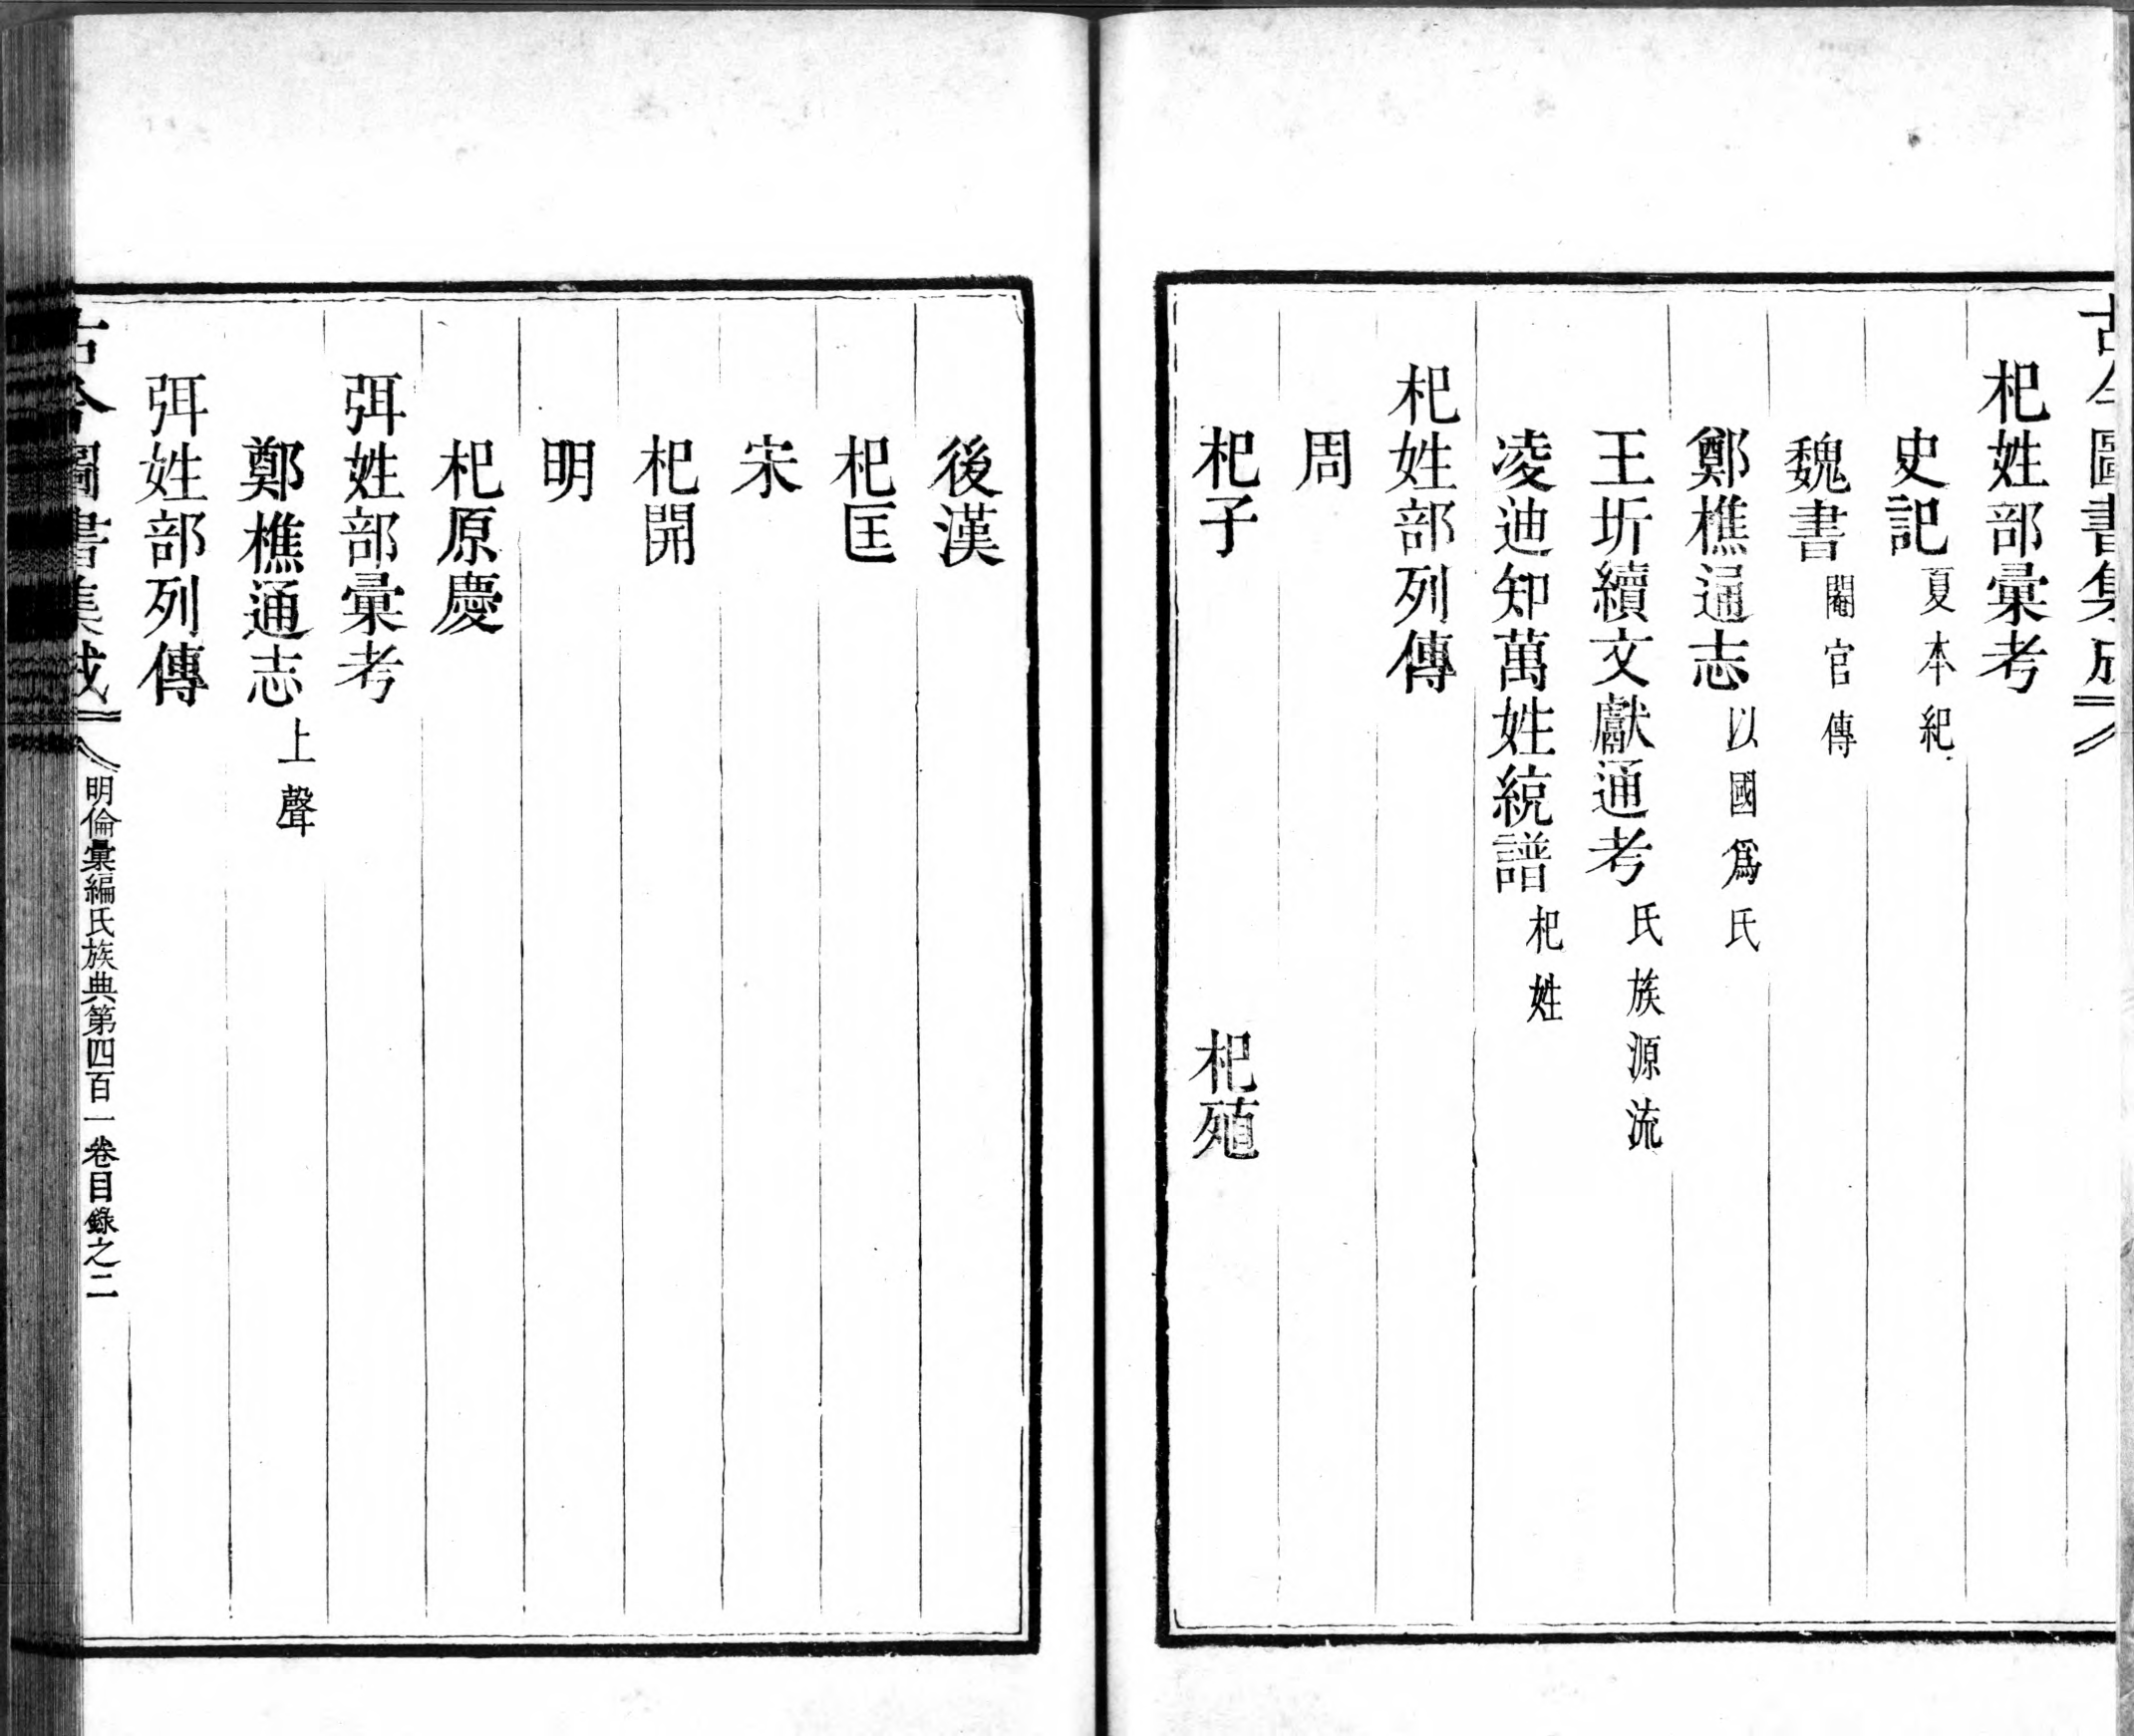 古今圖書集成
杞姓部彙考
史記夏本紀
魏書閹官傳
鄭樵通志以國爲氏
王圻續文獻通考氏族源流
凌迪知萬姓統譜杞姓
杞姓部列傳
周
杞子 杞殖
後漢
杞匡
宋
杞開
明
杞原慶
弭姓部彙考
鄭樵通志上聲
弭姓部列傳
古今圖書集成 明倫彙編氏族典第四百一卷目錄之二